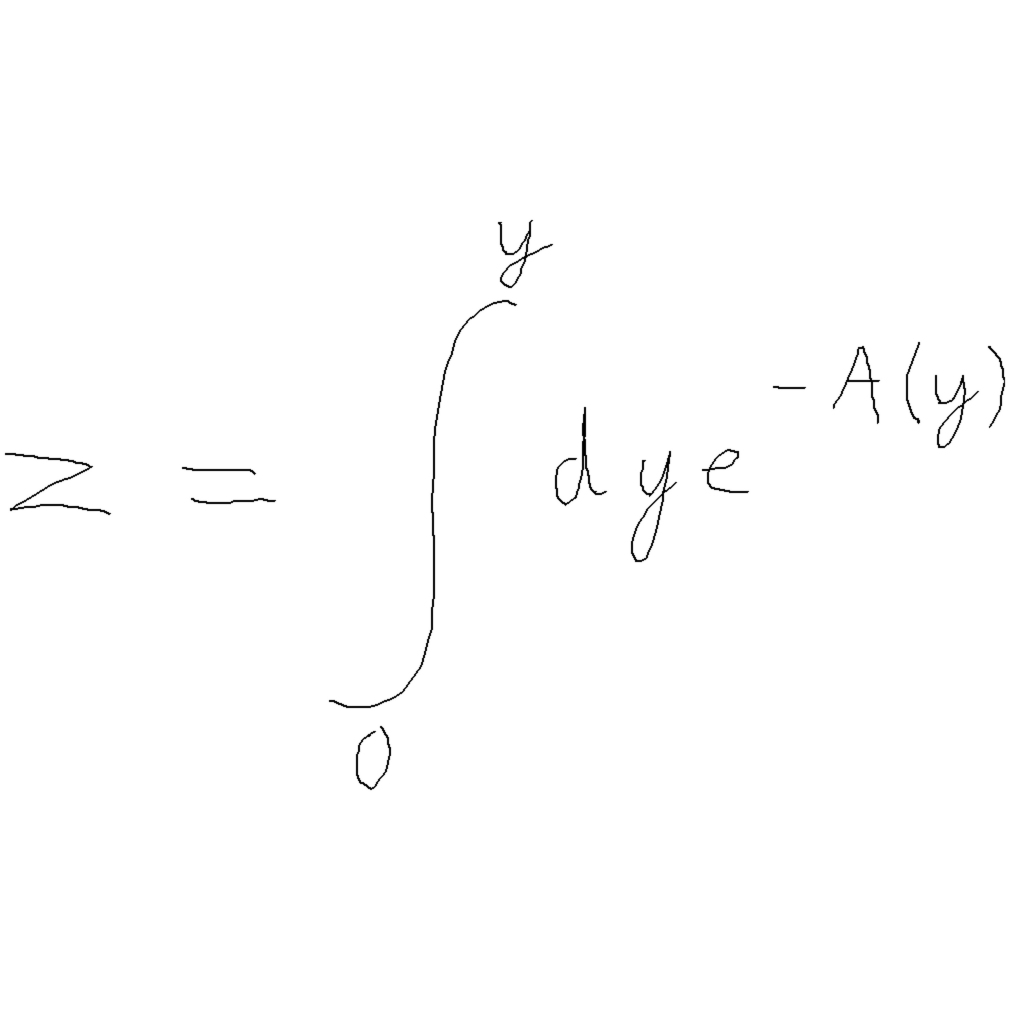 z = \int_{0}^{y} d y e^{- A ( y )}